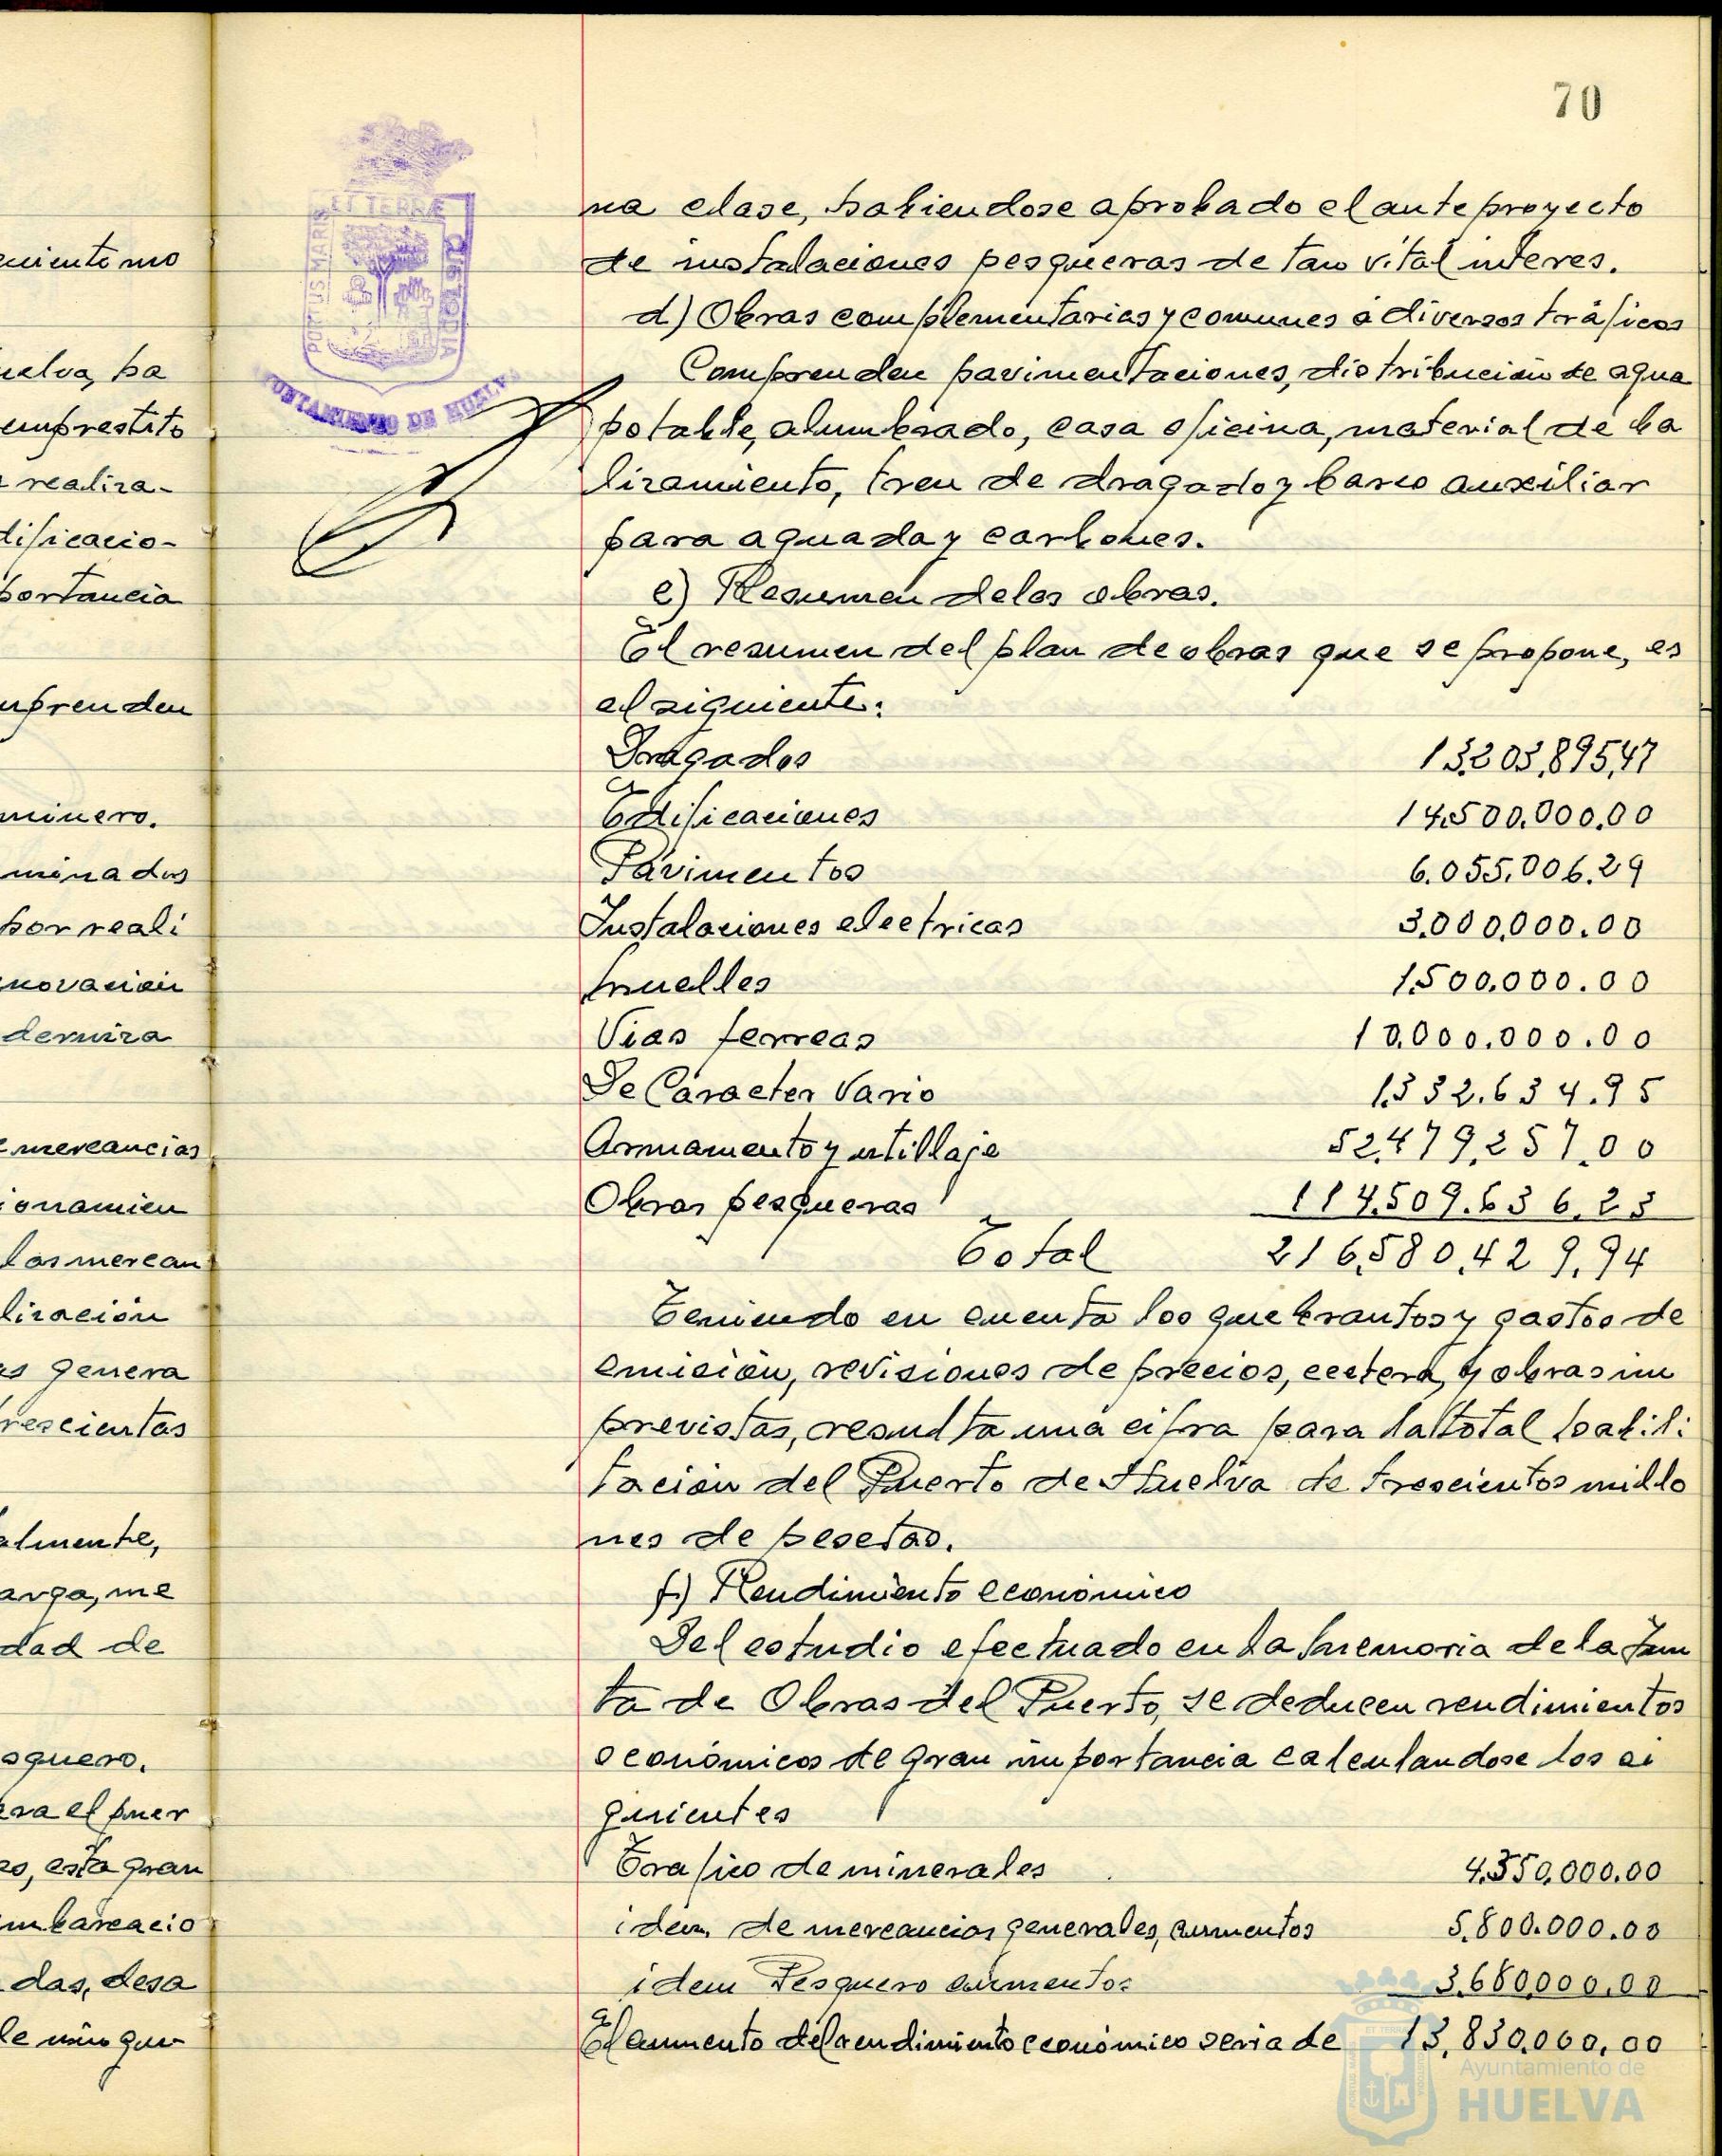 70
ET TERRÆ
PORTUS MARIS
CUSTODIA
AYUNTAMIENTO DE HUELVA
na clase, habiendose aprobado el anteproyecto
de instalaciones pesqueras de tan vital interes.
d) Obras complementarias y comunes a diversos tráficos
Comprenden pavimentaciones, distribución de agua
potable, alumbrado, casa oficina, material de ba
lizamiento, tren de dragado y barco auxiliar
para aguada y carbones.
e) Resumen de las obras.
El resumen del plan de obras que se propone, es
el siguiente:
Dragados 13.203.895,47
Edificaciones 14.500.000.00
Pavimentos 6.055.006.29
Instalaciones electricas 3.000.000.00
Muelles 1.500.000.00
Vias ferreas 10.000.000.00
De Caracter Vario 1.332.634.95
Armamento y utillaje 52.479.257.00
Obras pesqueras 114.509.636.23
Total 216.580.429.94
Teniendo en cuenta los quebrantos y gastos de
emisión, revisiones de precios, ecetera, y obras im
previstas, resulta una cifra para la total habili
tación del Puerto de Huelva de trescientos millo
nes de pesetas.
f) Rendimiento económico
Del estudio efectuado en la Memoria de la Jun
ta de Obras del Puerto, se deducen rendimientos
economicos de gran importancia calculandose los si
guientes
Trafico de minerales 4.350.000.00
idem de mercancias generales, aumentos 5.800.000.00
idem Pesquero aumentos 3.680.000.00
El aumento del rendimiento económico seria de 13.830.000.00
uciento mo
uelva, ha
emprestito
realiza-
dificacio-
portancia
mprenden
minero.
minados
por reali
novación
derniza
mercancias
ionamien
las mercan
lización
as genera
rescientas
almente,
arga, me
dad de
squero.
ara el puer
os, esta gran
mbarcacio
das, desa
de ningu
Ayuntamiento de
HUELVA